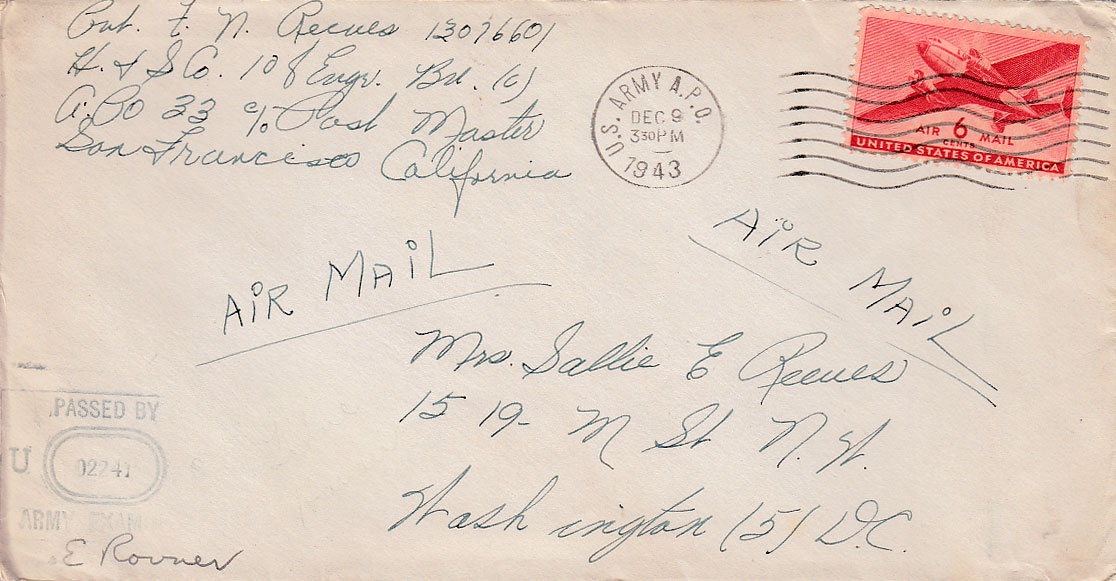 Pvt. F. N. Reeves 13076601
H. & S Co. 108 Engr. Bn. (C)
A.P.O 33 c/o Post Master
San Francisco
California
U.S. ARMY A.P.O.
DEC 9
3 30 PM
1943
AIR 6 MAIL
CENTS
UNITED STATES OF AMERICA
AIR MAIL
AIR MAIL
Mrs. Sallie E Reeves
15 19- M St N.W.
Washington (5) D.C.
PASSED BY
U 02241
ARMY EXAM
E Rovner